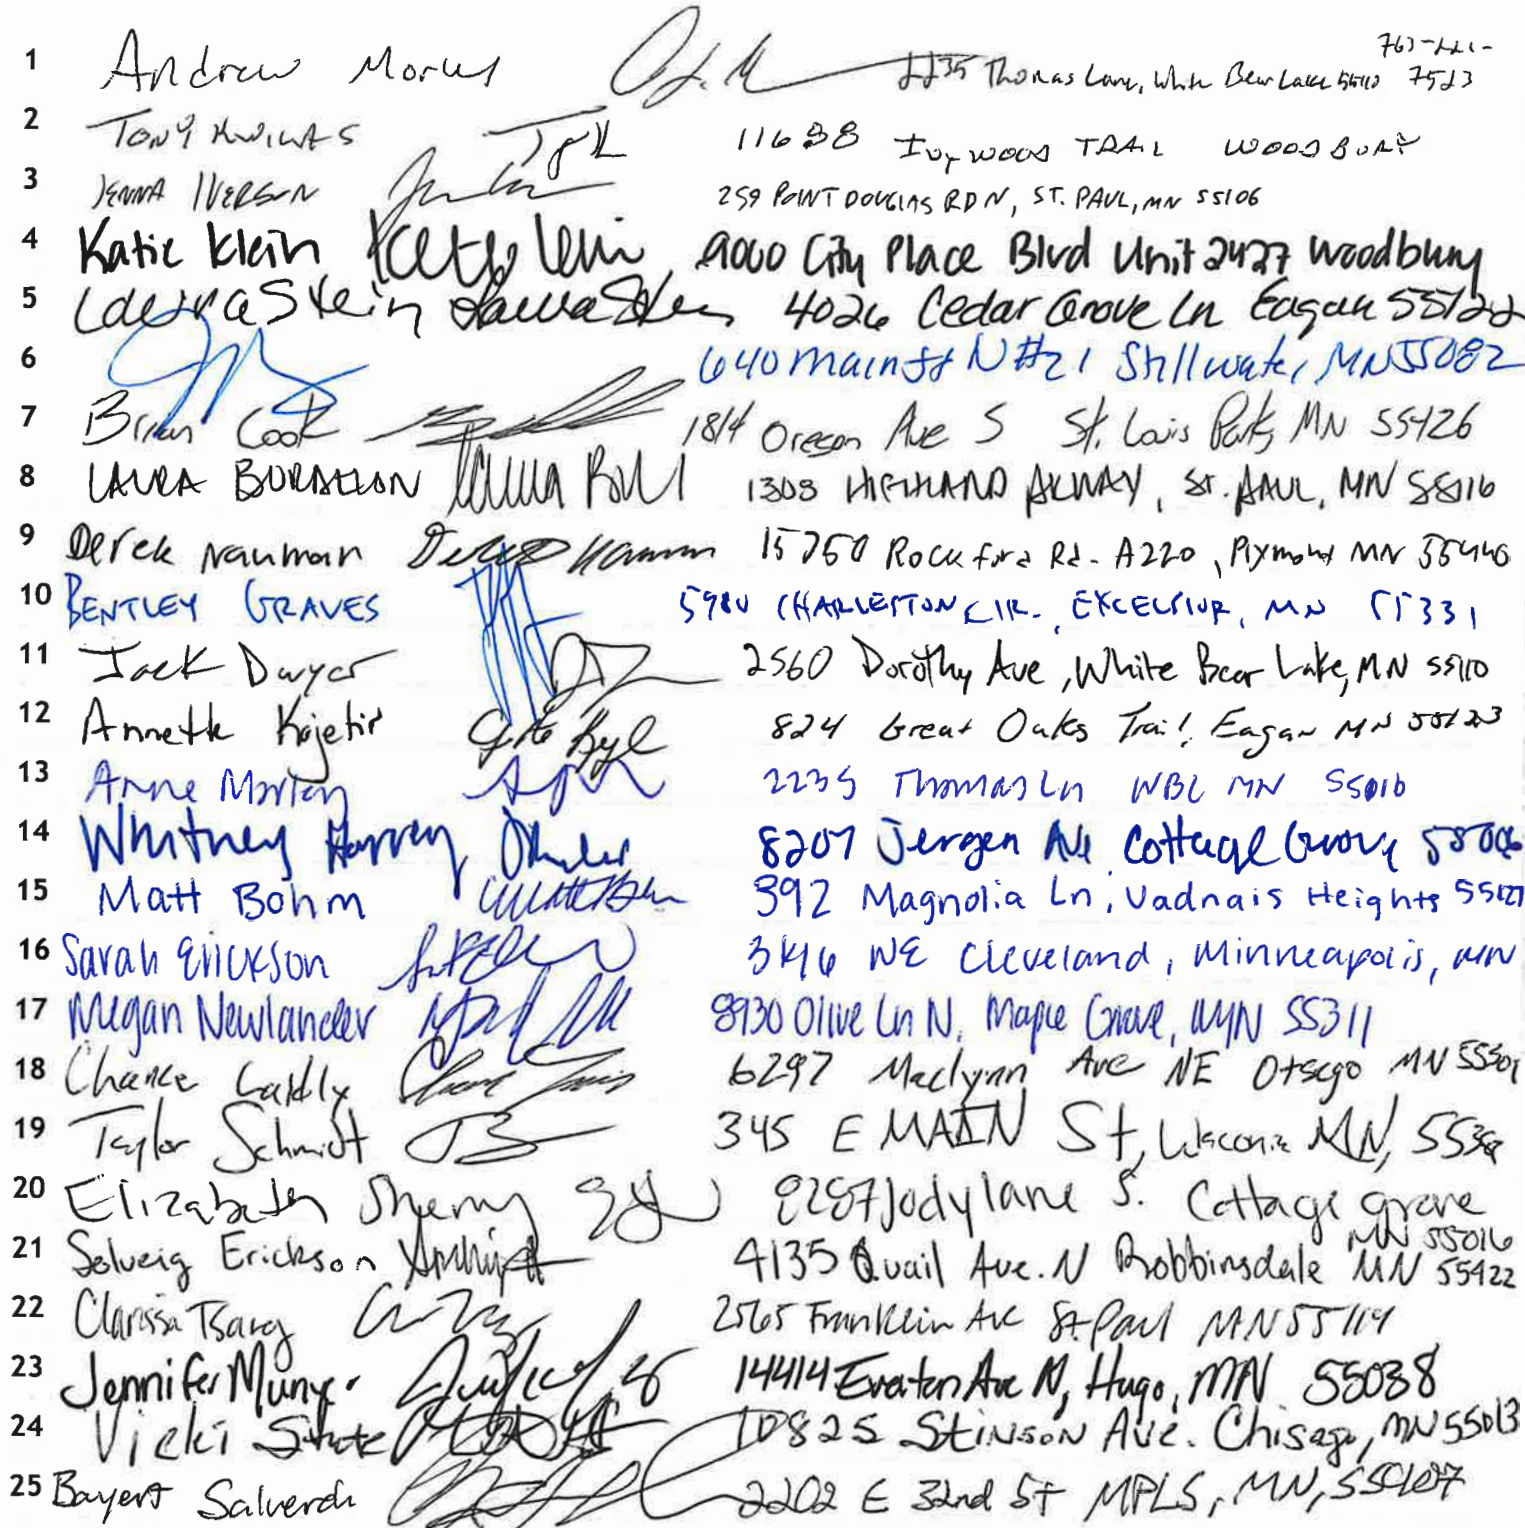 1 Andrew Morley 2235 Thomas Lane, White Bear Lake 55110 763-221-7523
2 TONY KWILAS 11688 Ivywood TRAIL WOODBURY
3 JENNA IVERSON 259 POINT DOUGLAS RD N, ST. PAUL, MN 55106
4 Katie Klein Katie Klein 9000 City Place Blvd Unit 2427 Woodbury
5 Laura Stein Laura Stein 4026 Cedar Grove Ln Eagan 55122
6 640 Main St N #21 Stillwater, MN 55082
7 Brian Cook 1814 Oregon Ave S St. Louis Park, MN 55426
8 LAURA BORDELON 1303 HIGHLAND PKWAY, ST. PAUL, MN 55116
9 Derek Nauman Derek Nauman 15750 Rockford Rd. A220, Plymouth MN 55446
10 BENTLEY GRAVES 5980 CHARLESTON CIR., EXCELSIOR, MN 55331
11 Jack Dwyer 2560 Dorothy Ave, White Bear Lake, MN 55110
12 Annette Kojetin 824 Great Oaks Trail, Eagan MN 55123
13 Anne Morley 2235 Thomas Ln WBL MN 55010
14 Whitney Harvey 8207 Jergen Ave Cottage Grove 55016
15 Matt Bohm 392 Magnolia Ln, Vadnais Heights 55127
16 Sarah Erickson NE Cleveland, Minneapolis, MN
17 Megan Newlander 8930 Olive Ln N, Maple Grove, MN 55311
18 Chance 6297 Maclynn Ave NE Otsego MN
19 Taylor Schmidt 345 E MAIN St, Waconia MN,
20 Elizabeth Sherry 8287 Jody lane S. Cottage grove MN 55016
21 Solveig Erickson 4135 Quail Ave. N Robbinsdale MN 55422
22 Clarissa Tsang 2565 Franklin Ave St. Paul MN 55114
23 Jennifer 14414 Everton Ave N, Hugo, MN 55038
24 Vicki Stute 10825 Stinson Ave. Chisago, MN 55013
25 Bayert Salverda 2202 E 32nd St MPLS, MN,